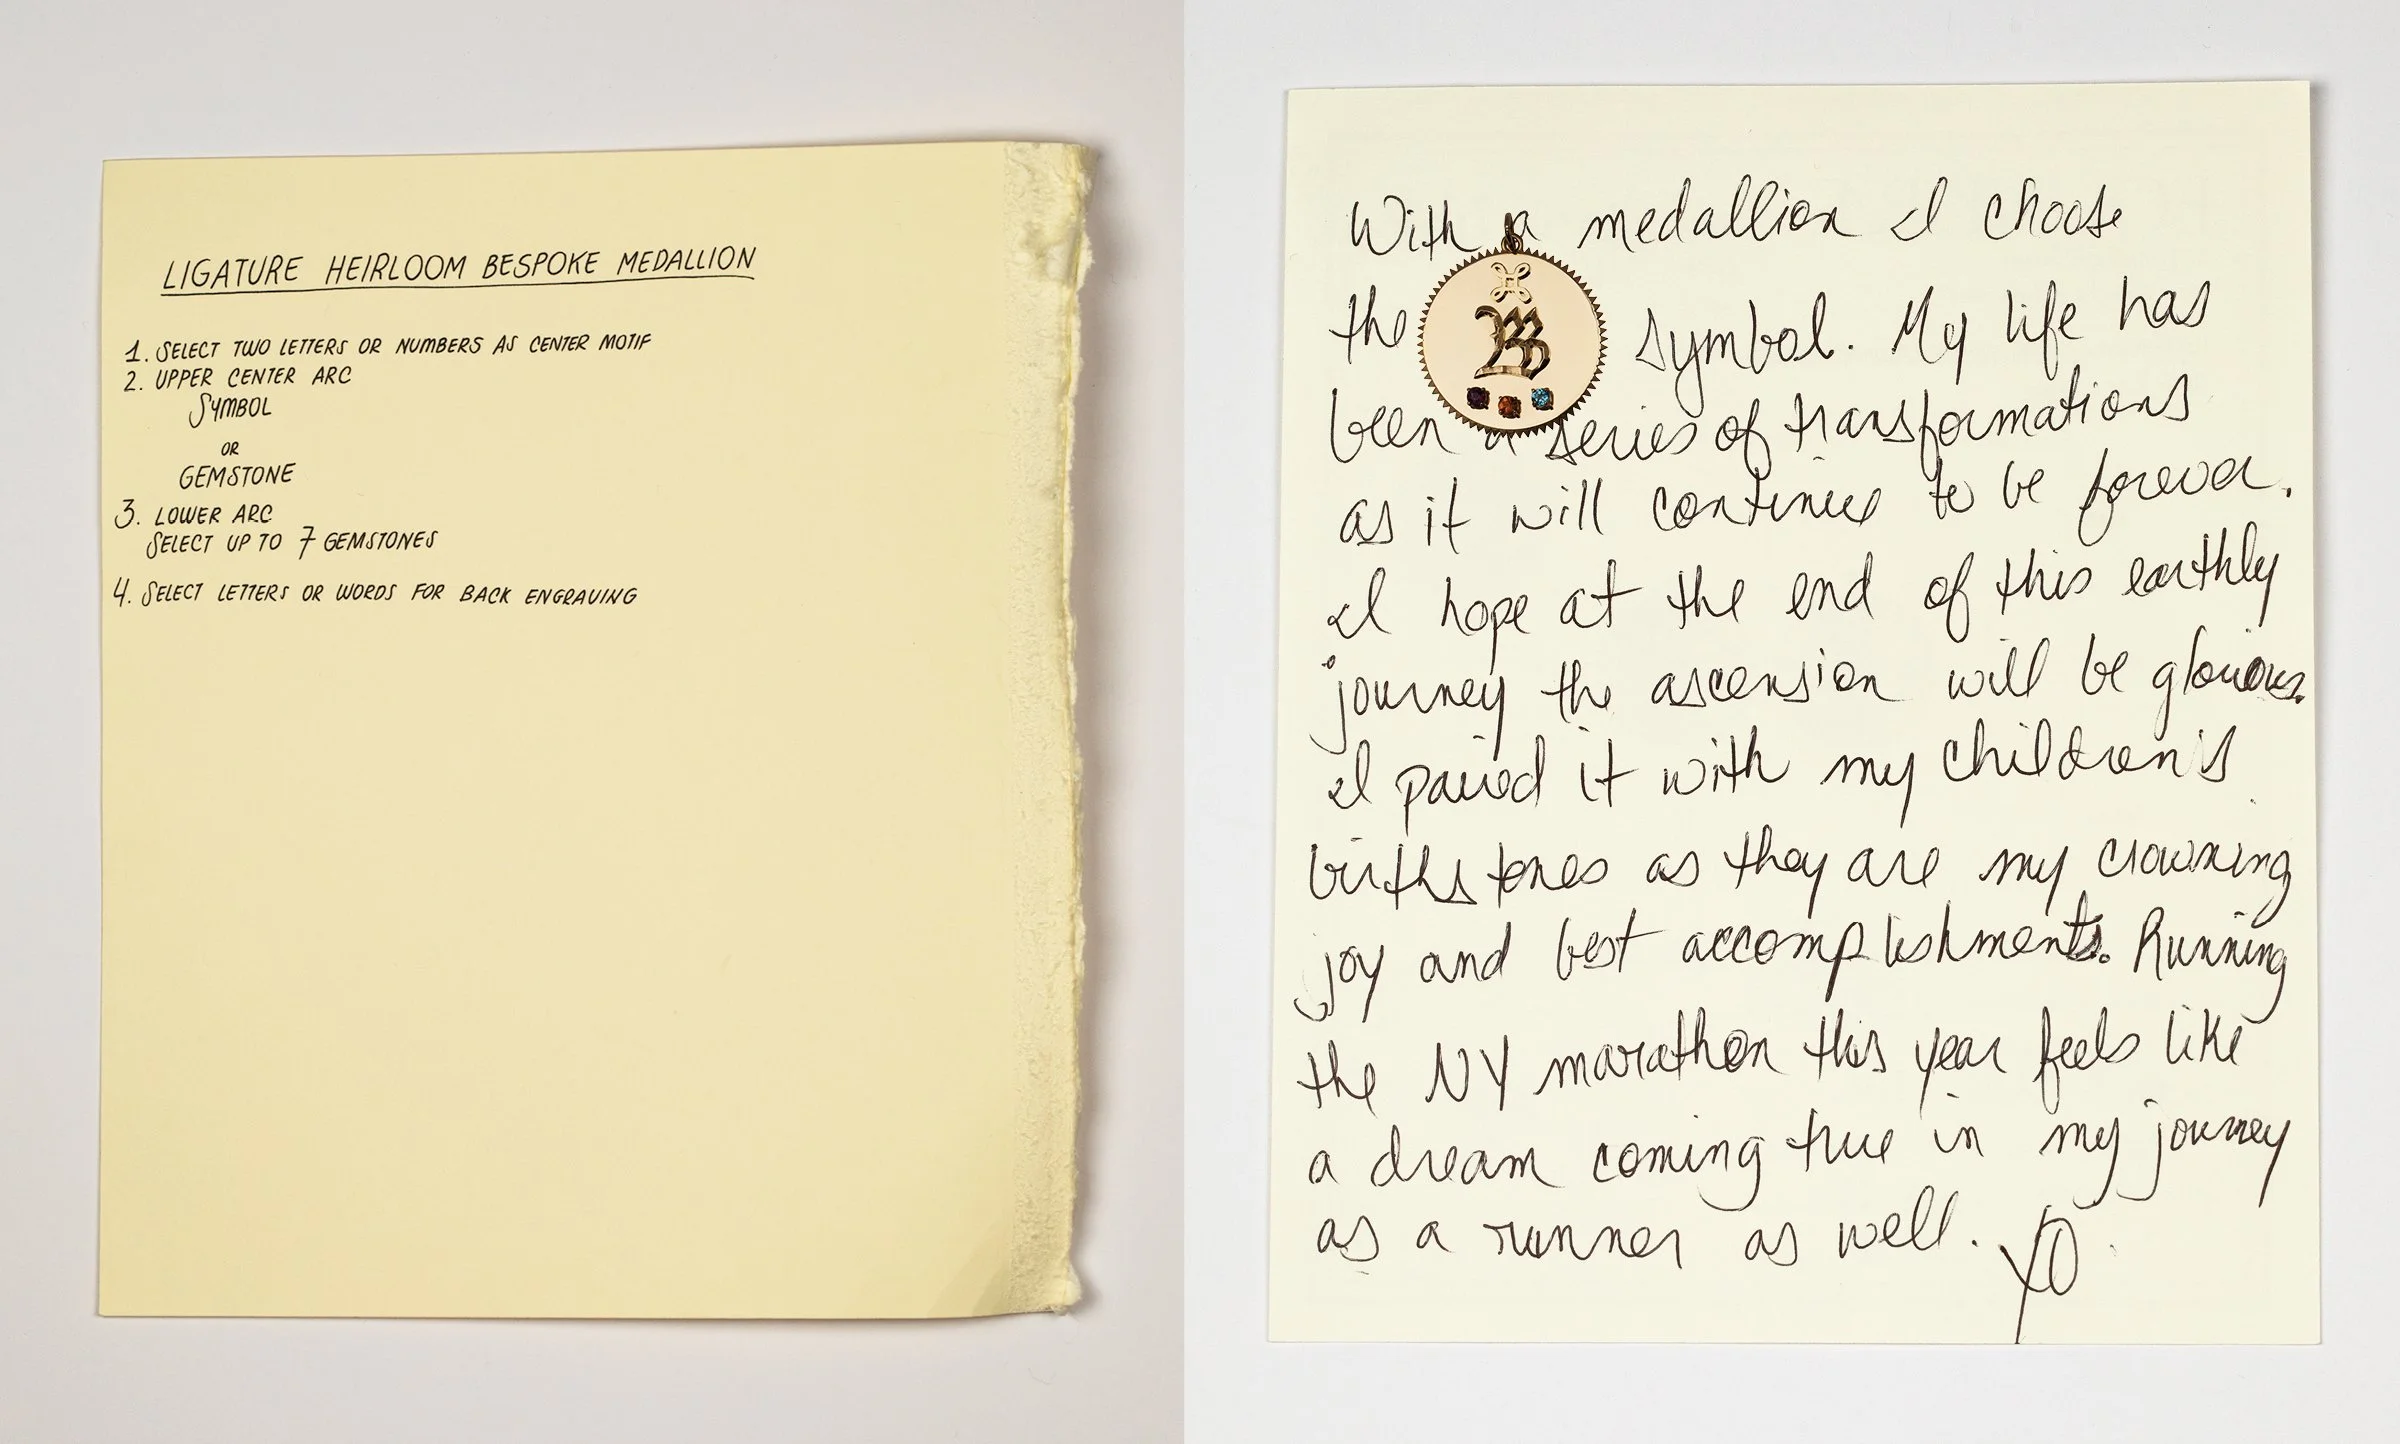 LIGATURE HEIRLOOM BESPOKE MEDALLION
1. SELECT TWO LETTERS OR NUMBERS AS CENTER MOTIF
2. UPPER CENTER ARC
SYMBOL
OR
GEMSTONE
3. LOWER ARC
SELECT UP TO 7 GEMSTONES
4. SELECT LETTERS OR WORDS FOR BACK ENGRAVING
With a medallion I choose
the symbol. My life has
been a series of transformations
as it will continue to be forever.
I hope at the end of this earthly
journey the ascension will be glorious.
I paired it with my children's
birthstones as they are my crowning
joy and best accomplishments. Running
the NY marathon this year feels like
a dream coming true in my journey
as a runner as well. XO